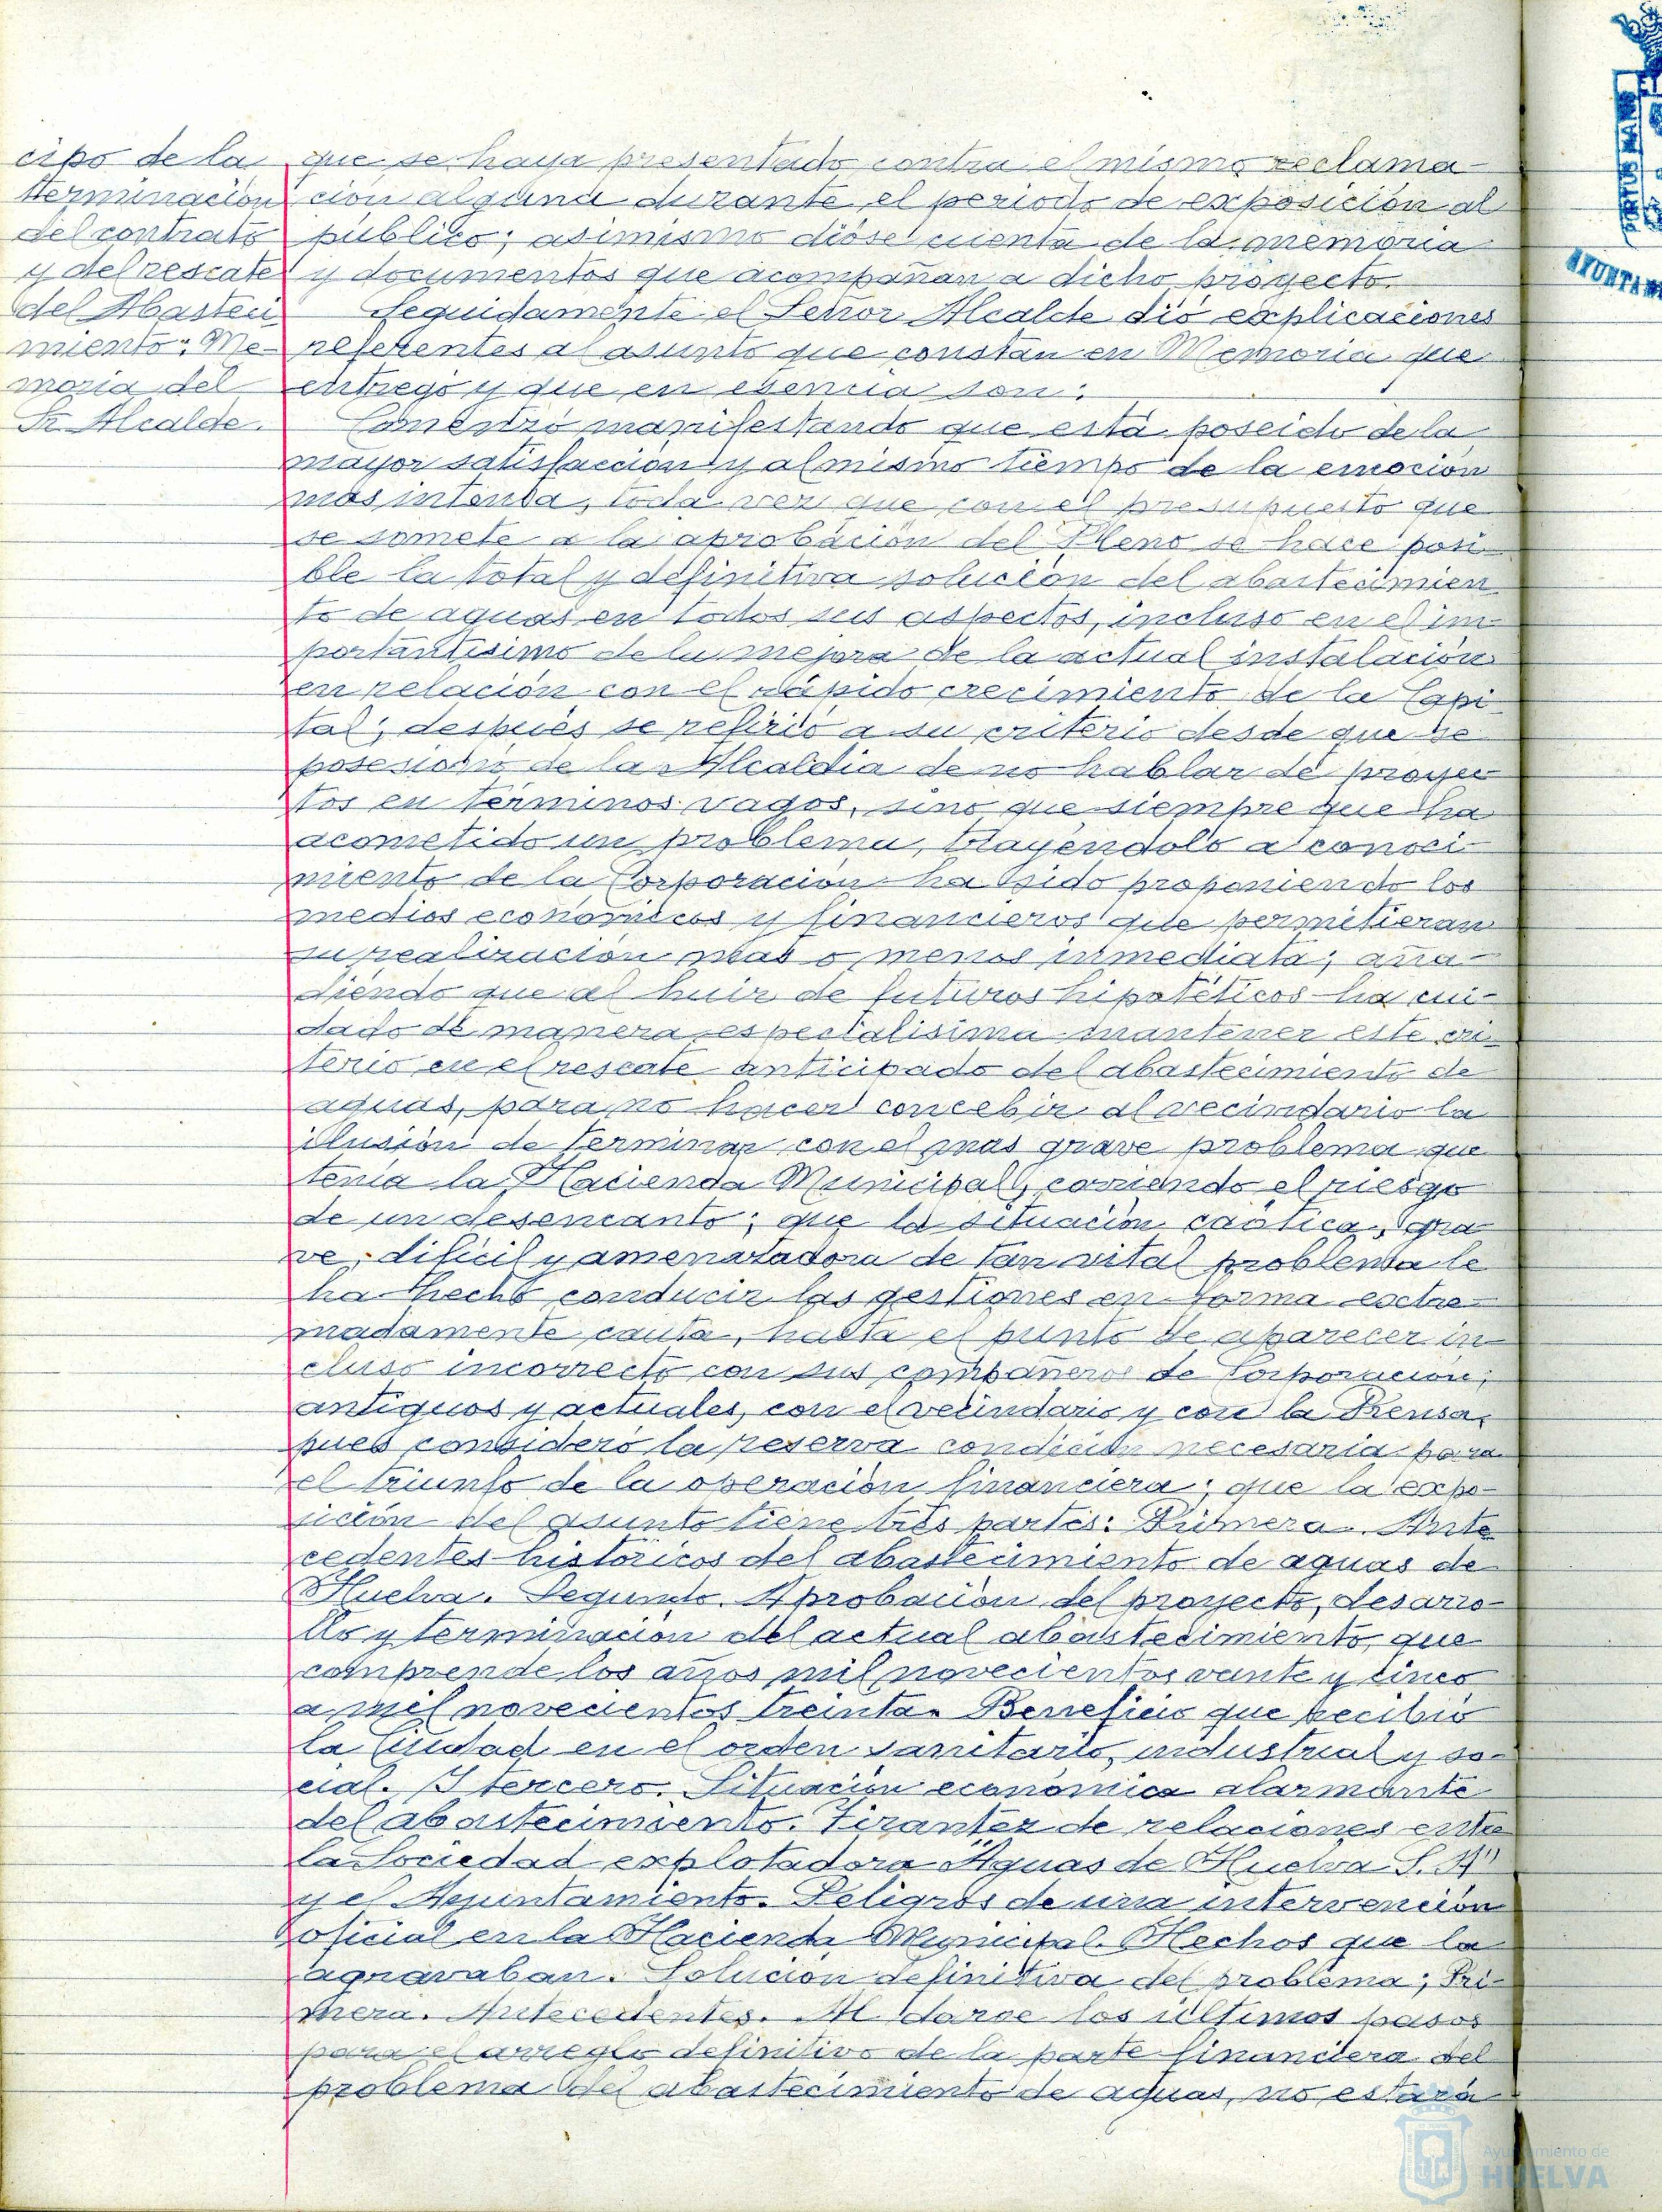 cipo de la
terminación
del contrato
y del rescate
del Abasteci
miento: Me-
moria del
Sr. Alcalde.
que se haya presentado contra el mismo reclama-
ción alguna durante el periodo de exposición al
público; asimismo dióse cuenta de la memoria
y documentos que acompañan a dicho proyecto.
Seguidamente el Señor Alcalde dió explicaciones
referentes al asunto que constan en Memoria que
entregó y que en esencia son:
Comenzó manifestando que está poseido de la
mayor satisfacción y al mismo tiempo de la emoción
mas intensa, toda vez que con el presupuesto que
se somete a la aprobación del Pleno se hace posi-
ble la total y definitiva solución del abastecimien
to de aguas en todos sus aspectos, incluso en el im-
portantísimo de la mejora de la actual instalación
en relación con el rápido crecimiento de la Capi-
tal; después se refirió a su criterio desde que se
posesionó de la Alcaldia de no hablar de proyec-
tos en términos vagos, sino que siempre que ha
acometido un problema, trayéndolo a conoci-
miento de la Corporación ha sido proponiendo los
medios económicos y financieros que permitieran
su realización mas o menos inmediata; aña-
diendo que al huir de futuros hipotéticos ha cui-
dado de manera especialisima mantener este cri-
terio en el rescate anticipado del abastecimiento de
aguas, para no hacer concebir al vecindario la
ilusión de terminar con el mas grave problema que
tenía la Hacienda Municipal, corriendo el riesgo
de un desencanto; que la situación caótica, gra-
ve, difícil y amenazadora de tan vital problema le
ha hecho conducir las gestiones en forma extre-
madamente cauta, hasta el punto de aparecer in-
cluso incorrecto con sus compañeros de Corporación,
antiguos y actuales, con el vecindario y con la Prensa,
pues consideró la reserva condición necesaria para
el triunfo de la operación financiera; que la expo-
sición del asunto tiene tres partes: Primera. Ante
cedentes históricos del abastecimiento de aguas de
Huelva. Segundo. Aprobación del proyecto, desarro-
llo y terminación del actual abastecimiento, que
comprende los años mil novecientos vente y cinco
a mil novecientos treinta. Beneficio que recibió
la Ciudad en el orden sanitario, industrial y so-
cial. Y tercero. Situación económica alarmante
del abastecimiento. Tirantez de relaciones entre
la Sociedad explotadora "Aguas de Huelva S. A"
y el Ayuntamiento. Peligros de una intervención
oficial en la Hacienda Municipal. Hechos que la
agravaban. Solución definitiva del problema; Pri-
mera. Antecedentes. Al darse los últimos pasos
para el arreglo definitivo de la parte financiera del
problema del abastecimiento de aguas, no estará
PORTUS MARIS
AYUNTAM
Ayuntamiento de
HUELVA